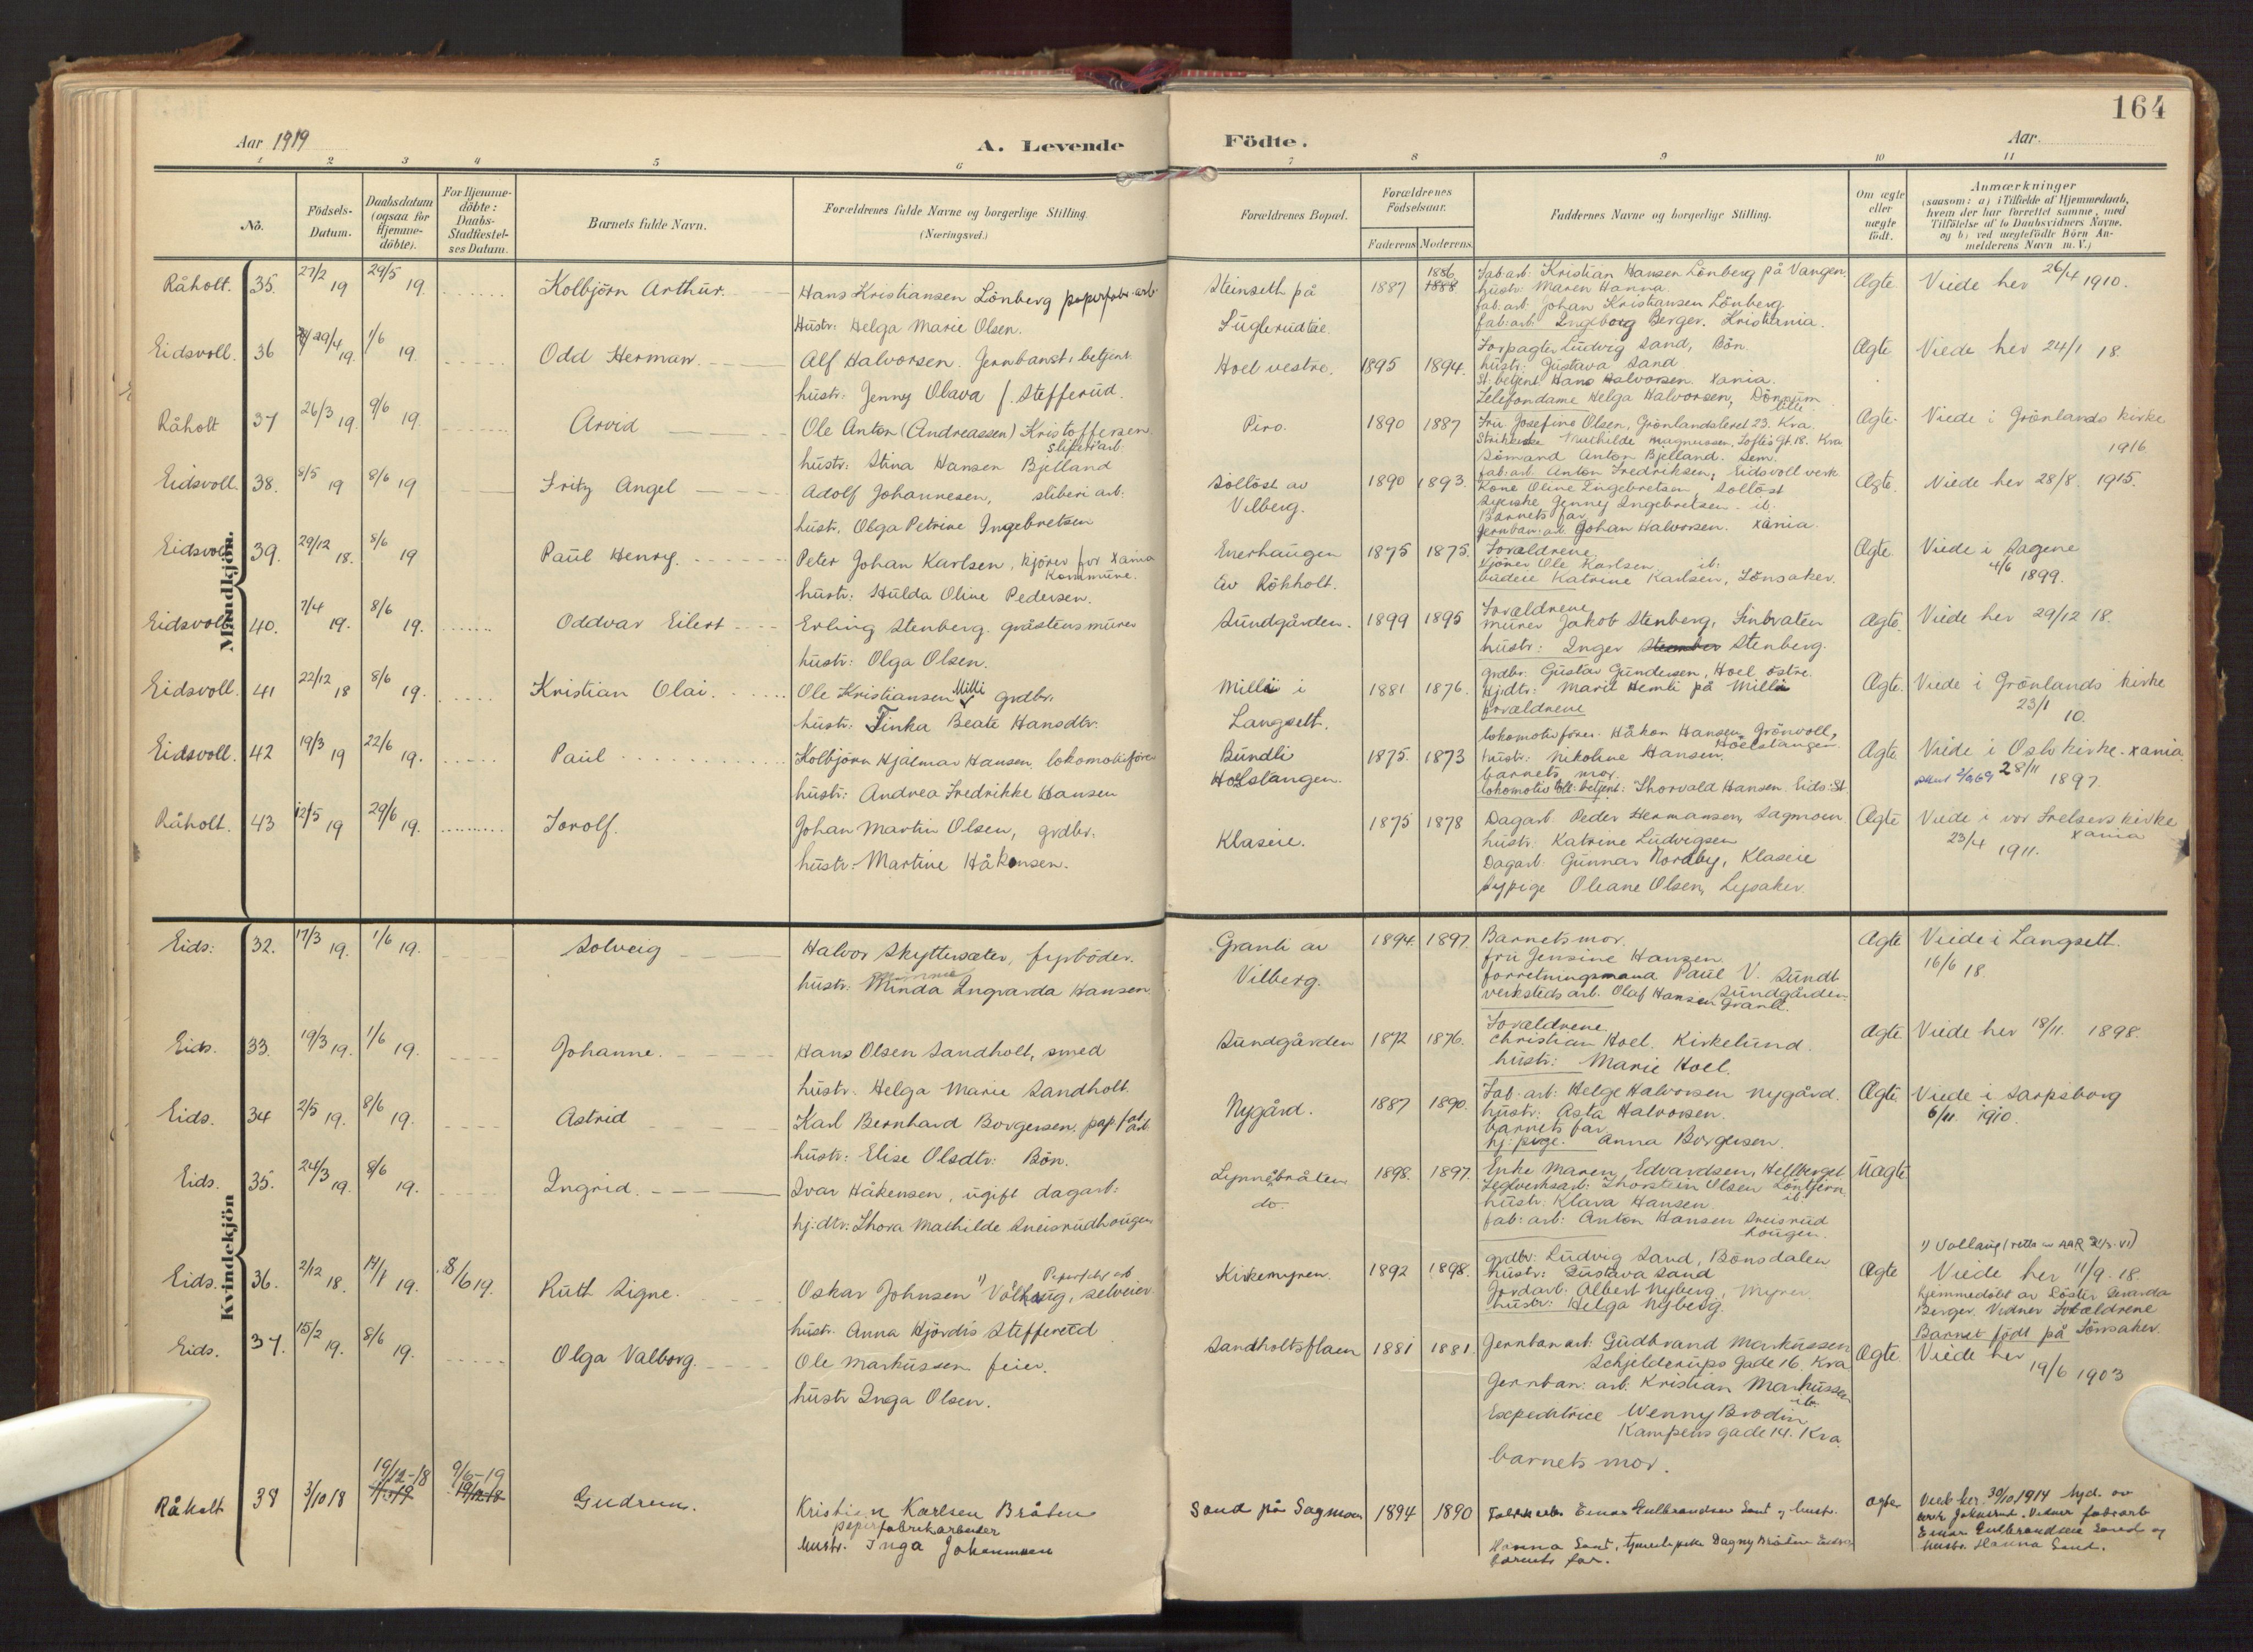 164
Aar 1919
A. Levende
Födte.
Aar.
1 2 3 4 5 6 7 8 9 10 11
No.
Födsels-
Datum.
Daabsdatum
(ogsaa for
Hjemme-
döbte).
For Hjemme-
döbte:
Daabs-
Stadfæstel-
ses Datum.
Barnets fulde Navn.
Forældrenes fulde Navne og borgerlige Stilling.
(Næringsvei.)
Forældrenes Bopæl.
Forældrenes
Födselsaar.
Faderens Moderens
Faddernes Navne og borgerlige Stilling.
Om ægte
eller
uægte
födt.
Anmærkninger
(saasom: a) i Tilfælde af Hjemmedaab,
hvem der har forrettet samme, med
Tilföielse af to Daabsvidners Navne,
og b) ved uægtefödte Börn An-
melderens Navn m. V.)
Mandkjön.
Råholt. 35. 27/2 19 29/5 19. Kolbjörn Arthur.
Hans Kristiansen Lönberg papirfabr. arb.
Hustr: Helga Marie Olsen.
Steinseth på
Fuglerudeie.
1887 1886 1888
Fab. arb: Kristian Hansen Lönberg på Vangen.
hustr: Maren Hanna.
fab. arb. Johan Kristiansen Lönberg
fab: arb: Ingeborg Berger. Kristiania.
Ægte Viede her 26/4 1910.
Eidsvoll. 36 29/4 19. 1/6 19. Odd Herman.
Alf Halvorsen. Jernbanst. betjent.
hustr: Jenny Olava f. Stefferud.
Hoel vestre. 1895 1894.
Forpagter Ludvig Sand, Bön.
hustr: Gustava Sand
St. betjent Hans Halvorsen. Xania.
Telefondame Helga Halvorsen, Dönnum
lille
Ægte Viede her 24/1 18.
Råholt 37 26/3 19. 9/6 19. Arvid
Ole Anton (Andreassen) Kristoffersen
sliberiarb.
hustr: Stina Hansen Bjelland
Piro. 1890 1887
Fru Josefine Olsen, Grönlandsleret 23. Kra.
Strikerske Mathilde Magnussen, Toftes Gt. 18. Kra.
Sömand Anton Bjelland. Sem.
Ægte Viede i Grönlands kirke
1916.
Eidsvoll. 38. 8/5 19 8/6 19 Fritz Angel
Adolf Johannesen, sliberi arb:
hustr. Olga Petrine Ingebretsen
Sollöst av
Vilberg.
1890 1893.
fab: arb. Anton Fredriksen, Eidsvoll verk
Kone Oline Ingebretsen, Sollöst
Syerske Jenny Ingebretsen. ib.
Barnets far
Ægte. Viede her 28/8. 1915.
Eidsvoll 39. 29/12 18. 8/6 19 Paul Henry.
Peter Johan Karlsen, kjörer for Xania
Kommune.
hustr: Hulda Oline Pedersen.
Enerhaugen
av Rökholt.
1875 1875.
Jernban: arb. Johan Halvorsen. Xania.
Forældrene
Kjörer Ole Karlsen. ib:
budeie Katrine Karlsen, Lönsaker.
Ægte Viede i Sagene
4/6 1899.
Eidsvoll 40. 7/4 19. 8/6 19. Oddvar Eilert
Erling Stenberg. gråstensmurer
hustr: Olga Olsen.
Sundgården. 1899 1895
Forældrene
murer Jakob Stenberg, Finbråten
hustr: Inger Stenberg.
Ægte. Viede her 29/12 18.
Eidsvoll. 41 22/12 18 8/6 19. Kristian Olai.
Ole Kristiansen Milli grdbr.
hustr: Tinka Beate Hansdtr.
Milli i
Langsett.
1881 1876.
grdbr. Gustav Gundersen, Hoel östre.
Hjdtr: Marit Hemli på Milli
Forældrene
Ægte. Viede i Grönlands kirke
23/1 10.
Eidsvoll. 42 19/3 19 22/6 19. Paul
Kolbjörn Hjalmar Hansen. lokomotivförer
hustr: Andrea Fredrikke Hansen
Bundli
Hoelstangen.
1875. 1873
lokomotivförer. Håkon Hansen Grönvoll,
Hoelstangen.
hustr: Nikoline Hansen.
barnets mor.
Thorvald Hansen. Eids: St.
Ægte. Viede i Oslo kirke. Xania
28/11 1897.
Råholt. 43 12/5 19 29/6 19. Torolf.
Johan Martin Olsen, grdbr.
hustr: Martine Håkonsen.
Klaseie. 1875 1878
Dagarb. Peder Hermansen, Sagmoen.
hustr: Katrine Ludvigsen
Dagarb. Gunnar Nordby, Klaseie
Sypige Oleane Olsen, Lysaker.
Ægte Viede i vor Frelsers kirke
Xania
23/4 1911.
Kvindekjön
Eids: 32. 17/3 19. 1/6 19. Solveig
Halvor Skyttersæter, fyrböder.
hustr: Minda Ingvarda Hansen.
Granli av
Vilberg.
1894. 1897.
Barnets mor.
fru Jensine Hansen.
forretningsmand Paul V. Sundt
Sundgården.
verksteds arb. Olaf Hansen Granli.
Ægte Viede i Langsett.
16/6 18.
Eids. 33. 19/3 19. 1/6 19. Johanne.
Hans Olsen Sandholt, smed
hustr. Helga Marie Sandholt.
Sundgården 1872 1876.
Forældrene
Christian Hoel. Kirkelund.
hustr: Marie Hoel.
Ægte Viede her 18/11. 1898.
Eids. 34 2/5 19. 8/6 19. Astrid
Karl Bernhard Borgersen, pap. fab. arb.
hustr: Elise Olsdtr. Bön.
Nygård. 1887 1890.
Fab. arb: Helge Halvorsen Nygård.
hustr: Asta Halvorsen.
barnets far
hj: pige. Anna Borgersen.
Ægte. Viede i Sarpsborg
6/11 1910.
Eids. 35. 24/3 19. 8/6 19. Ingrid.
Ivar Håkensen, ugift dagarb:
hj: dtr: Thora Mathilde Sneisrudhougen
Lynnebråten
do.
1898. 1897.
Enke Maren Edvardsen, Hellberget.
Teglverksarb: Thorstein Olsen Löntjern
hustr: Klara Hansen. ib.
fab: arb: Anton Hansen Sneisrud
hougen.
Uægte.
Eids. 36. 2/12 18. 14/1 19. 8/6 19. Ruth Signe.
Oskar Johnsen 1) Vålhaug, selveier
Papirfabr arb
hustr. Anna Hjördis Stefferud
Kirkemyren. 1892 1898.
grdbr: Ludvig Sand, Bönsdalen
hustr: Gustava Sand
Jordarb: Albert Nyberg, Myrer.
hustr: Helga Nyberg.
Ægte Viede her 11/9. 18.
Hjemmedöbt av Söster Sevarda
Berger. Vidner Forældrene
Barnet födt på Lönsaker.
Eids. 37. 15/2 19. 8/6 19. Olga Valborg.
Ole Markussen feier.
hustr Inga Olsen.
Sandholtsflaen 1881 1881.
Jernban arb: Gudbrand Markussen
Schjelderups Gade 16. Kra
Jernban: arb: Kristian Markussen
ib.
Expeditrice Wenny Brodin
Kampens gade 14. Kra.
barnets mor.
Ægte. Viede her
19/6 1903
Råholt 38 3/10 18 19/12-18 9/6-19 Gudrun.
Kristian Karlsen Bråten
papirfabrikarbeider
hustr. Inga Johannesen
Sand på Sagmoen 1894 1890
Einar Gulbrandsen Sand og hustr.
Hanna Sand, Dagny Bråten
barnets far.
Ægte Vied her 30/10 1914 Hjd. av
Vidner fabr arb
Einar Gulbrandsen Sand og
hustr. Hanna Sand.